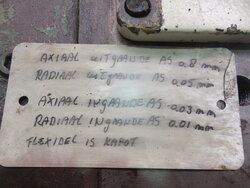 AXIAAL UITGAANDE AS 0.8 mm
RADIAAL UITGAANDE AS 0.05 mm
AXIAAL INGAANDE AS 0.03 mm
RADIAAL INGAANDE AS 0.01 mm
FLEXIDEL IS KAPOT